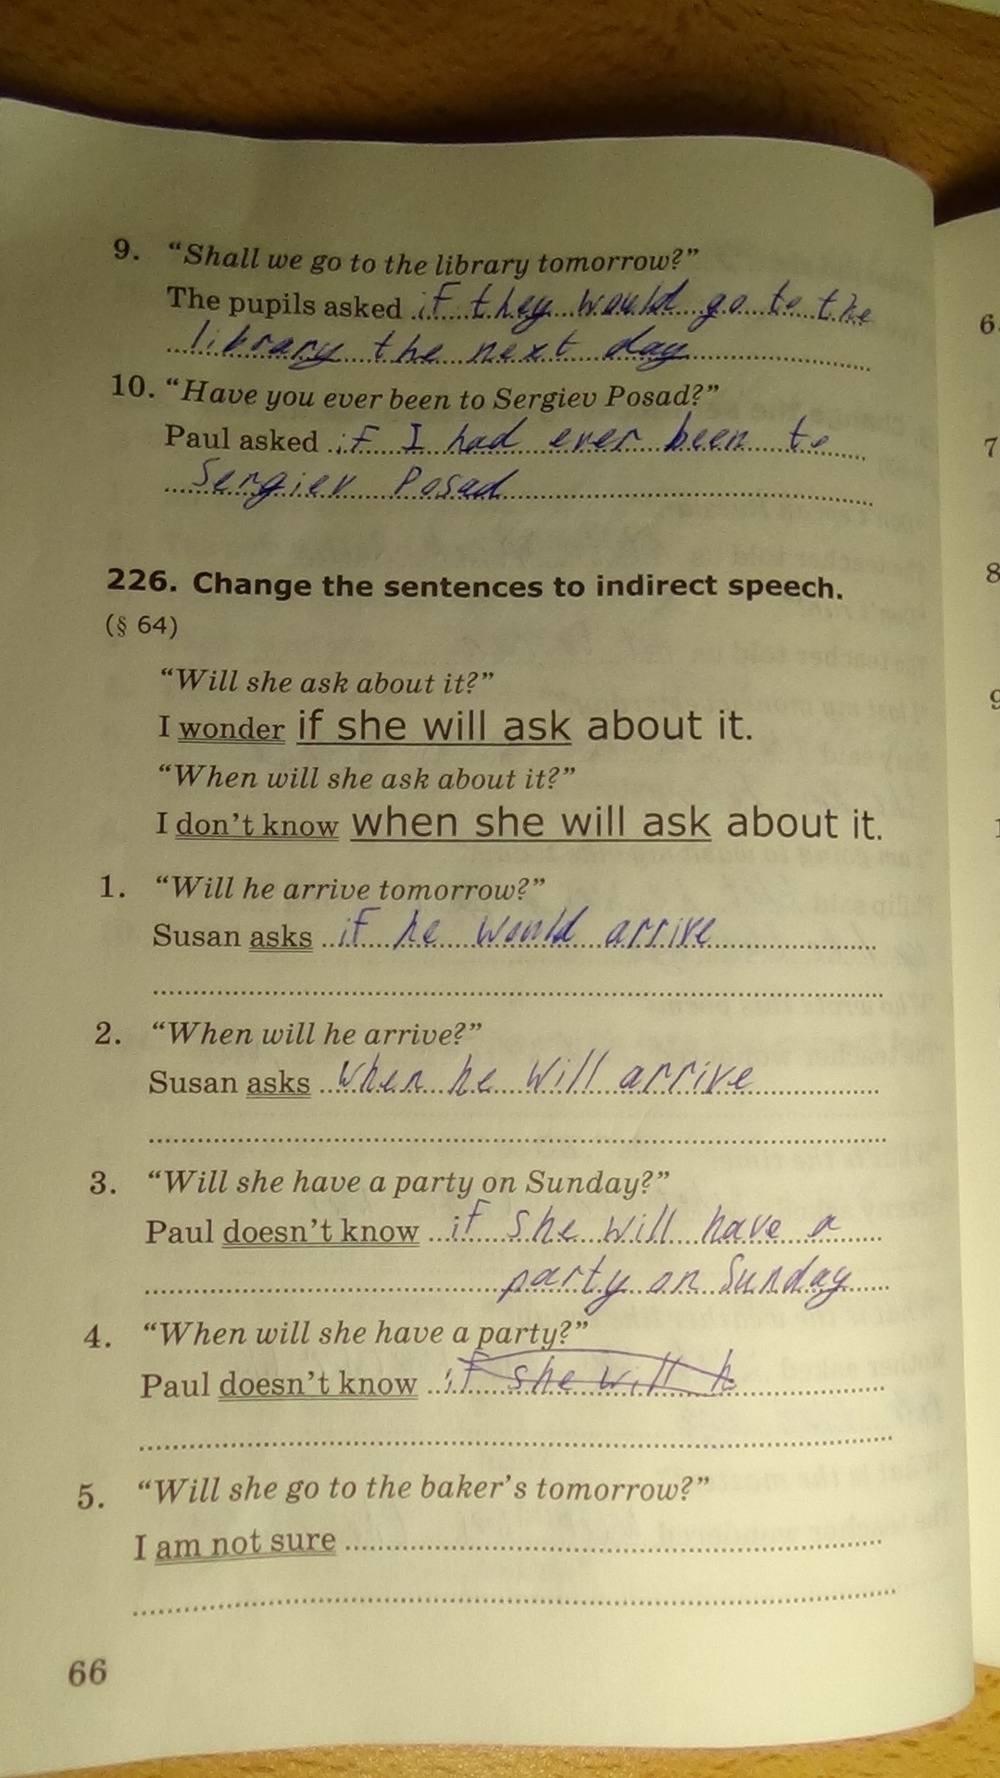 9. “Shall we go to the library tomorrow?”
The pupils asked if they would go to the
library the next day
10. “Have you ever been to Sergiev Posad?”
Paul asked if I had ever been to
Sergiev Posad
226. Change the sentences to indirect speech.
(§ 64)
“Will she ask about it?”
I wonder if she will ask about it.
“When will she ask about it?”
I don’t know when she will ask about it.
1. “Will he arrive tomorrow?”
Susan asks if he would arrive
2. “When will he arrive?”
Susan asks when he will arrive
3. “Will she have a party on Sunday?”
Paul doesn’t know if she will have a
party on Sunday
4. “When will she have a party?”
Paul doesn’t know if she will h
5. “Will she go to the baker’s tomorrow?”
I am not sure
66
6.
7
8
9
1